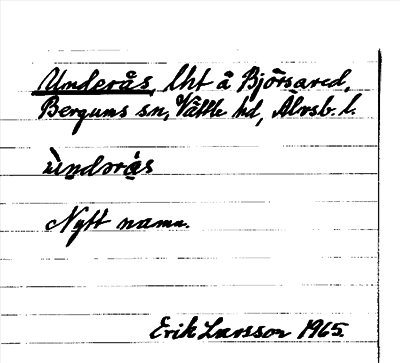 Underås, lht å Björsared,
Bergums sn, Vättle hd, Älvsb. l.
ùndərás
Nytt namn.
Erik Larsson 1965.